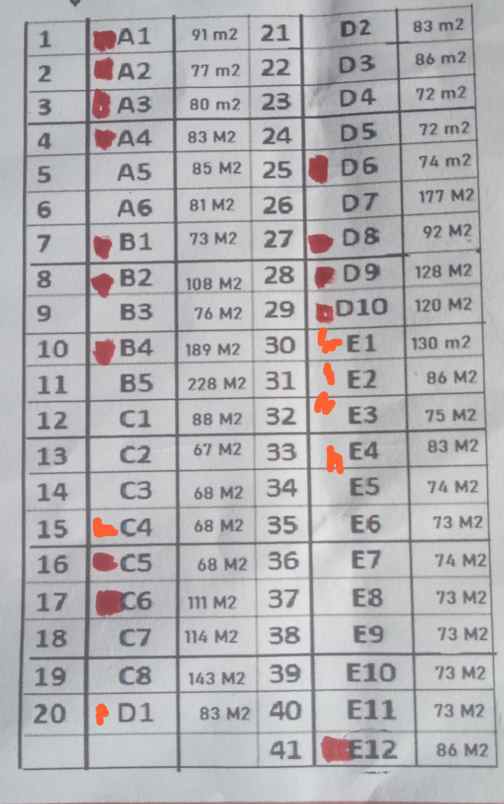 1 A1 91 m2 21 D2 83 m2
2 A2 77 m2 22 D3 86 m2
3 A3 80 m2 23 D4 72 m2
4 A4 83 M2 24 D5 72 m2
5 A5 85 M2 25 D6 74 m2
6 A6 81 M2 26 D7 177 M2
7 B1 73 M2 27 D8 92 M2
8 B2 108 M2 28 D9 128 M2
9 B3 76 M2 29 D10 120 M2
10 B4 189 M2 30 E1 130 m2
11 B5 228 M2 31 E2 86 M2
12 C1 88 M2 32 E3 75 M2
13 C2 67 M2 33 E4 83 M2
14 C3 68 M2 34 E5 74 M2
15 C4 68 M2 35 E6 73 M2
16 C5 68 M2 36 E7 74 M2
17 C6 111 M2 37 E8 73 M2
18 C7 114 M2 38 E9 73 M2
19 C8 143 M2 39 E10 73 M2
20 D1 83 M2 40 E11 73 M2
41 E12 86 M2